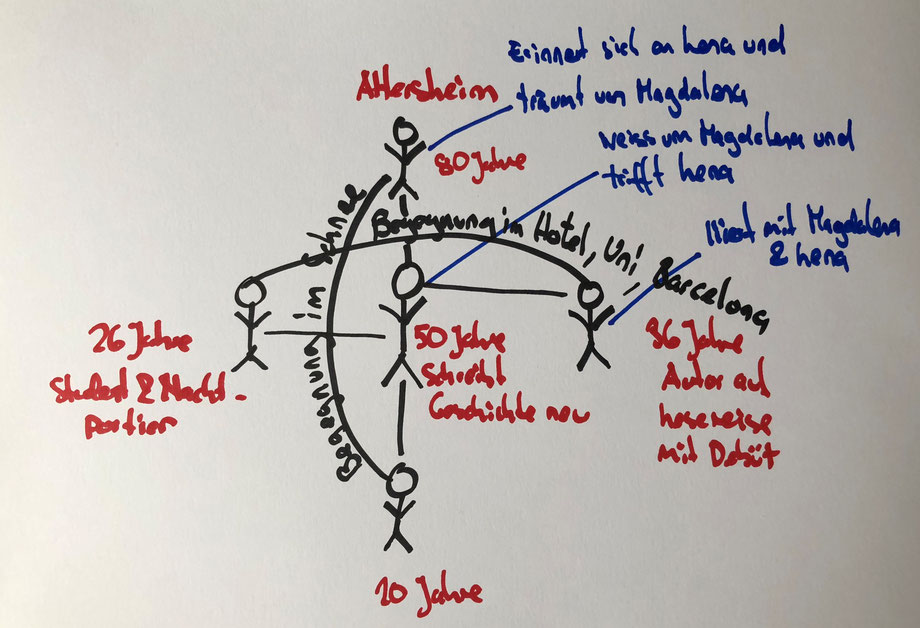 Erinnert sich an Lena und
träumt von Magdalena
Altersheim
80 Jahre
weiss um Magdalena und
trifft Lena
Begegnung im Schnee
Begegnung im Hotel, Uni, Barcelona
mit Magdalena
& Lena
26 Jahre
Student & Nacht-
portier
50 Jahre
Schreibt
Geschichte neu
36 Jahre
Autor auf
Lesereise
mit Debüt
10 Jahre